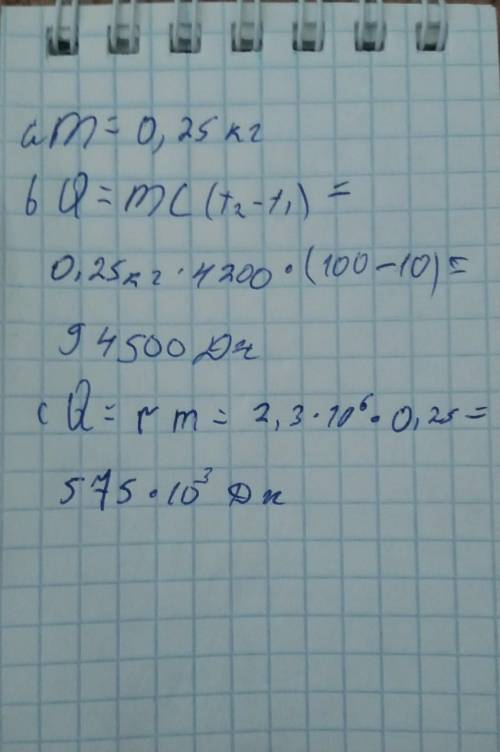 a m = 0,25 кг
b Q = mc (t₂ - t₁) =
0,25 кг · 4200 · (100 - 10) =
94500 Дж
c Q = r m = 2,3 · 10⁶ · 0,25 =
575 · 10³ Дж